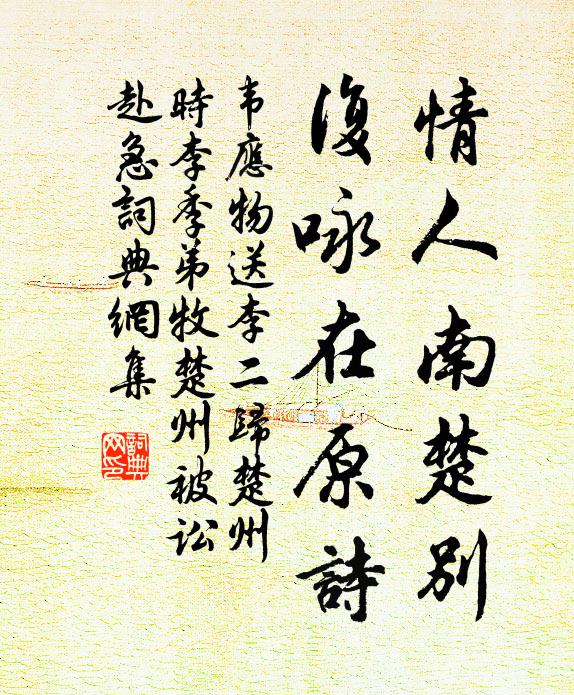 情人南楚別
復咏在原詩
韦應物送李二歸楚州
時李季弟牧楚州被訟
赴急詞典網集
詞典
网印